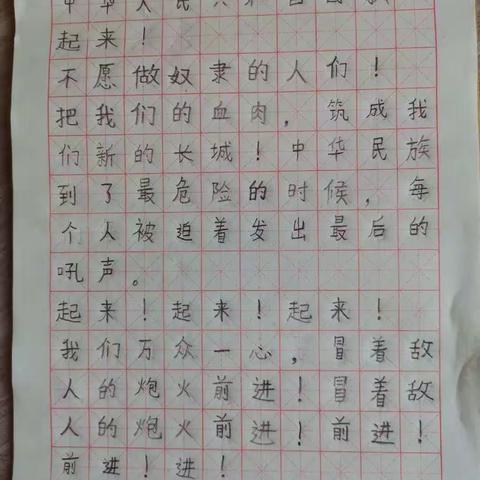 中华人民共和国国歌
起来！
不愿做奴隶的人们！
把我们的血肉，筑成我
们新的长城！中华民族
到了最危险的时候，每
个人被迫着发出最后的
吼声。
起来！起来！起来！
我们万众一心，冒着敌
人的炮火前进！冒着敌
人的炮火前进！前进！
前进！进！